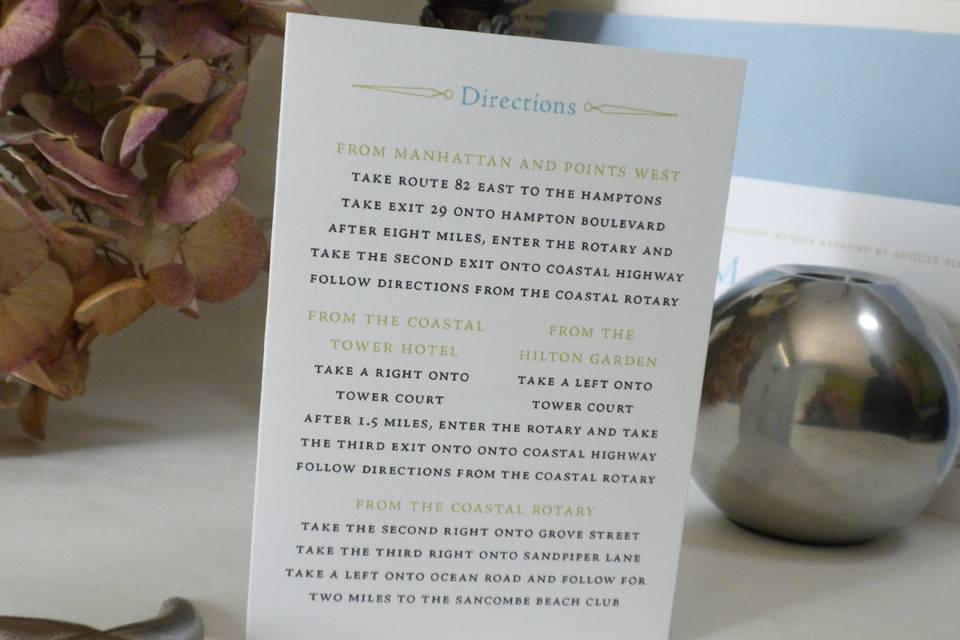 Directions
FROM MANHATTAN AND POINTS WEST
TAKE ROUTE 82 EAST TO THE HAMPTONS
TAKE EXIT 29 ONTO HAMPTON BOULEVARD
AFTER EIGHT MILES, ENTER THE ROTARY AND
TAKE THE SECOND EXIT ONTO COASTAL HIGHWAY
FOLLOW DIRECTIONS FROM THE COASTAL ROTARY
FROM THE COASTAL
TOWER HOTEL
TAKE A RIGHT ONTO
TOWER COURT
FROM THE
HILTON GARDEN
TAKE A LEFT ONTO
TOWER COURT
AFTER 1.5 MILES, ENTER THE ROTARY AND TAKE
THE THIRD EXIT ONTO ONTO COASTAL HIGHWAY
FOLLOW DIRECTIONS FROM THE COASTAL ROTARY
FROM THE COASTAL ROTARY
TAKE THE SECOND RIGHT ONTO GROVE STREET
TAKE THE THIRD RIGHT ONTO SANDPIPER LANE
TAKE A LEFT ONTO OCEAN ROAD AND FOLLOW FOR
TWO MILES TO THE SANCOMBE BEACH CLUB
KINDLY RESPOND BY AUGUST
M